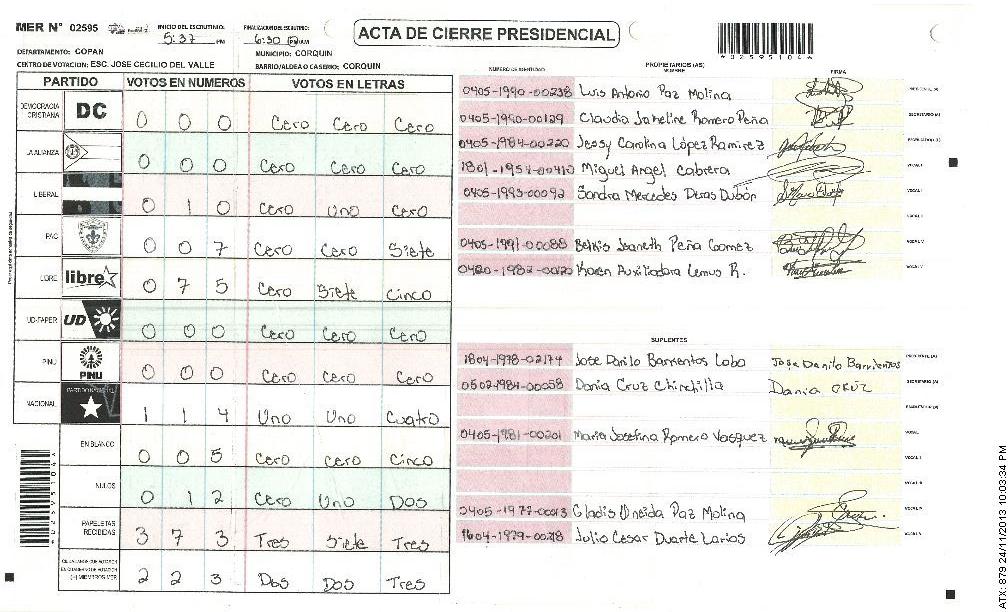 MER N° 02595 INICIO DEL ESCRUTINIO: 5:37 PM FINALIZACION DEL ESCRUTINIO: 6:30 PM/AM
ACTA DE CIERRE PRESIDENCIAL
DEPARTAMENTO: COPAN MUNICIPIO: CORQUIN
CENTRO DE VOTACION: ESC. JOSE CECILIO DEL VALLE BARRIO/ALDEA O CASERIO: CORQUIN
PARTIDO VOTOS EN NUMEROS VOTOS EN LETRAS
DEMOCRACIA CRISTIANA DC 0 0 0 Cero Cero Cero
LA ALIANZA 0 0 0 Cero Cero Cero
LIBERAL 0 1 0 Cero Uno Cero
PAC 0 0 7 Cero Cero Siete
LIBRE libre 0 7 5 Cero Siete Cinco
UD-FAPER UD 0 0 0 Cero Cero Cero
PINU PINU 0 0 0 Cero Cero Cero
NACIONAL 1 1 4 Uno Uno Cuatro
EN BLANCO 0 0 5 Cero Cero Cinco
NULOS 0 1 2 Cero Uno Dos
PAPELETAS RECIBIDAS 3 7 3 Tres Siete Tres
(+) MIEMBROS MER 2 2 3 Dos Dos Tres
NUMERO DE IDENTIDAD PROPIETARIOS (AS) NOMBRE FIRMA
0405-1990-00238 Luis Antonio Paz Molina
Claudia Jakeline Romero Peña
0405-1984-00220 Jessy Carolina López Ramirez
1801-1954-00410 Miguel Angel Cabrera
0405-1993-00092 Sandra Mercedes Deras Dubón
0405-1991-00088 Jeaneth Peña Gomez
Karen Auxiliadora Lemus R.
SUPLENTES
1804-1978-02174 Jose Danilo Barrientos Lobo Jose Danilo Barrientos
0502-1984-00058 Dania Cruz Chinchilla Dania CRUZ
0405-1981-00201 Maria Josefina Romero Vasquez
0405-1977-00013 Gladis Oneida Paz Molina
1604-1979-00218 Julio Cesar Duarte Larios
ATX: 879 24/11/2013 10:03:34 PM